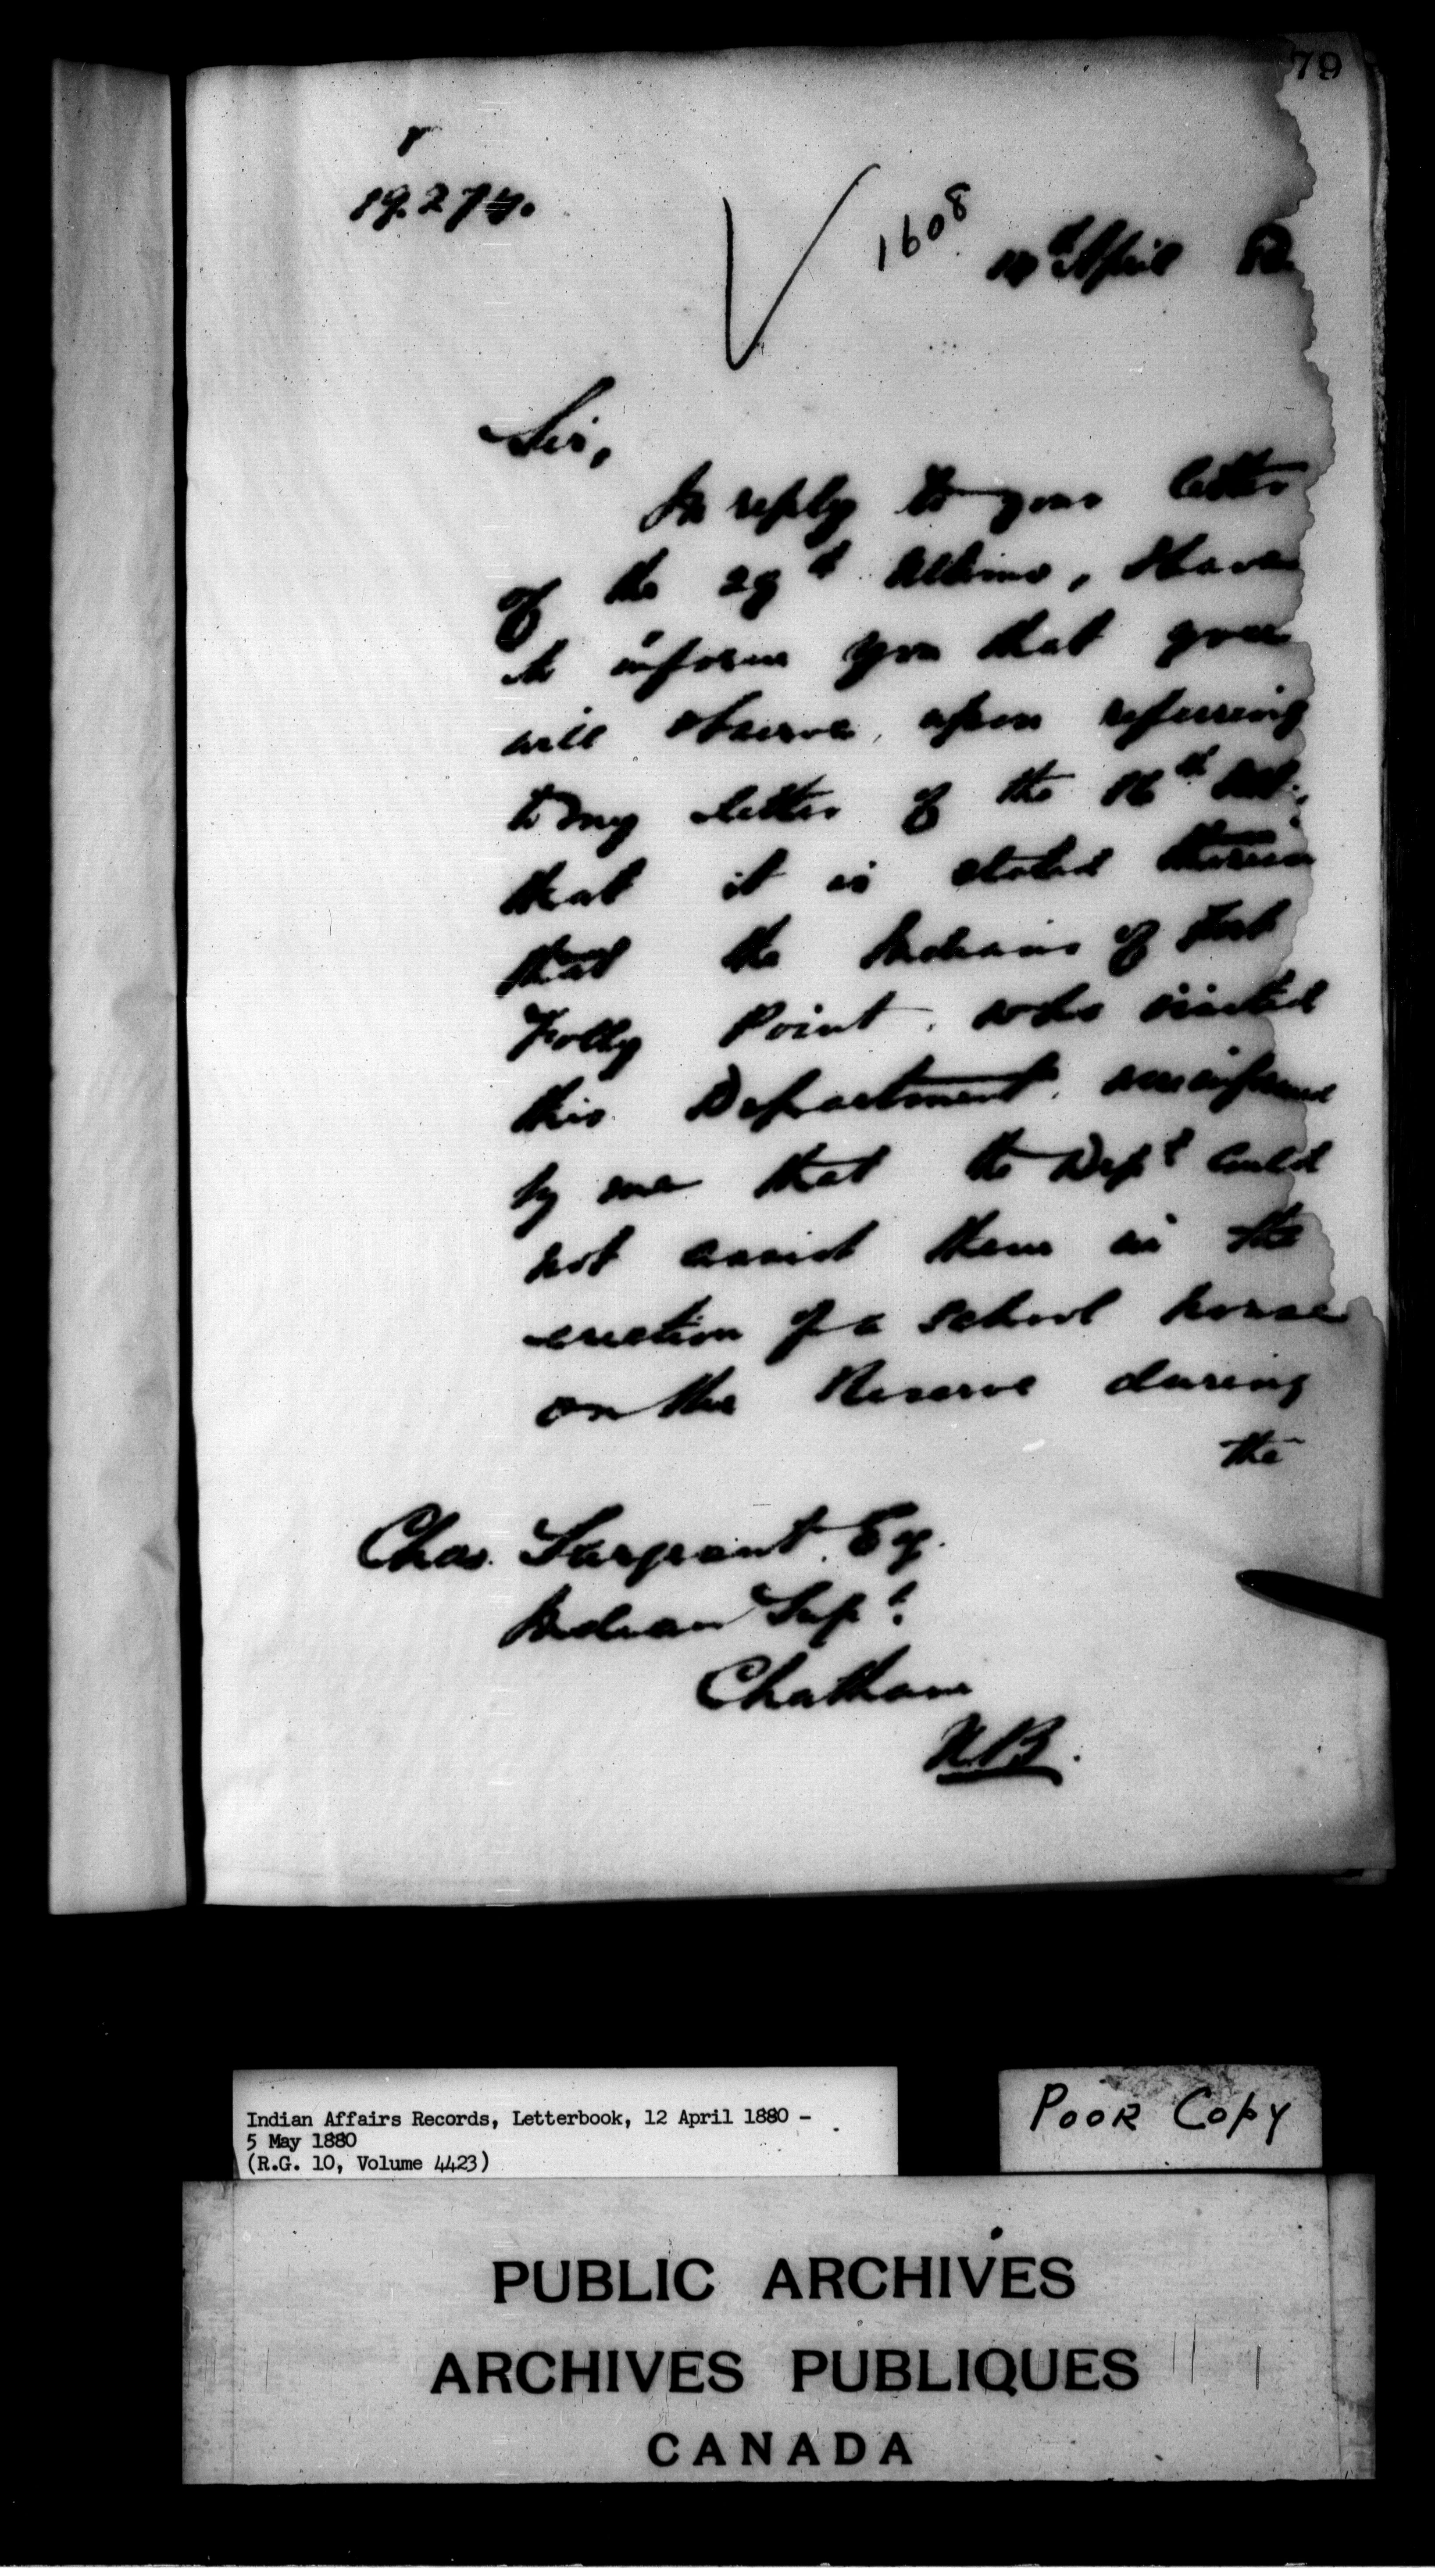 79
1608
April
Sir,
In reply to your letter
of the 29th Ultimo, I have
to inform you that you
will observe, upon referring
to my letter of the 16th Ult.,
that it is stated therein
that the Indians of Fort
Folly Point, who visited
this Department, were informed
by me that the Dept could
not assist them in the
erection of a school house
on the Reserve during
the
Chas. Sargeant, Esq.
Indian Supt.
Chatham
N.B.
Indian Affairs Records, Letterbook, 12 April 1880 -
5 May 1880
(R.G. 10, Volume 4423)
POOR COPY
PUBLIC ARCHIVES
ARCHIVES PUBLIQUES
CANADA